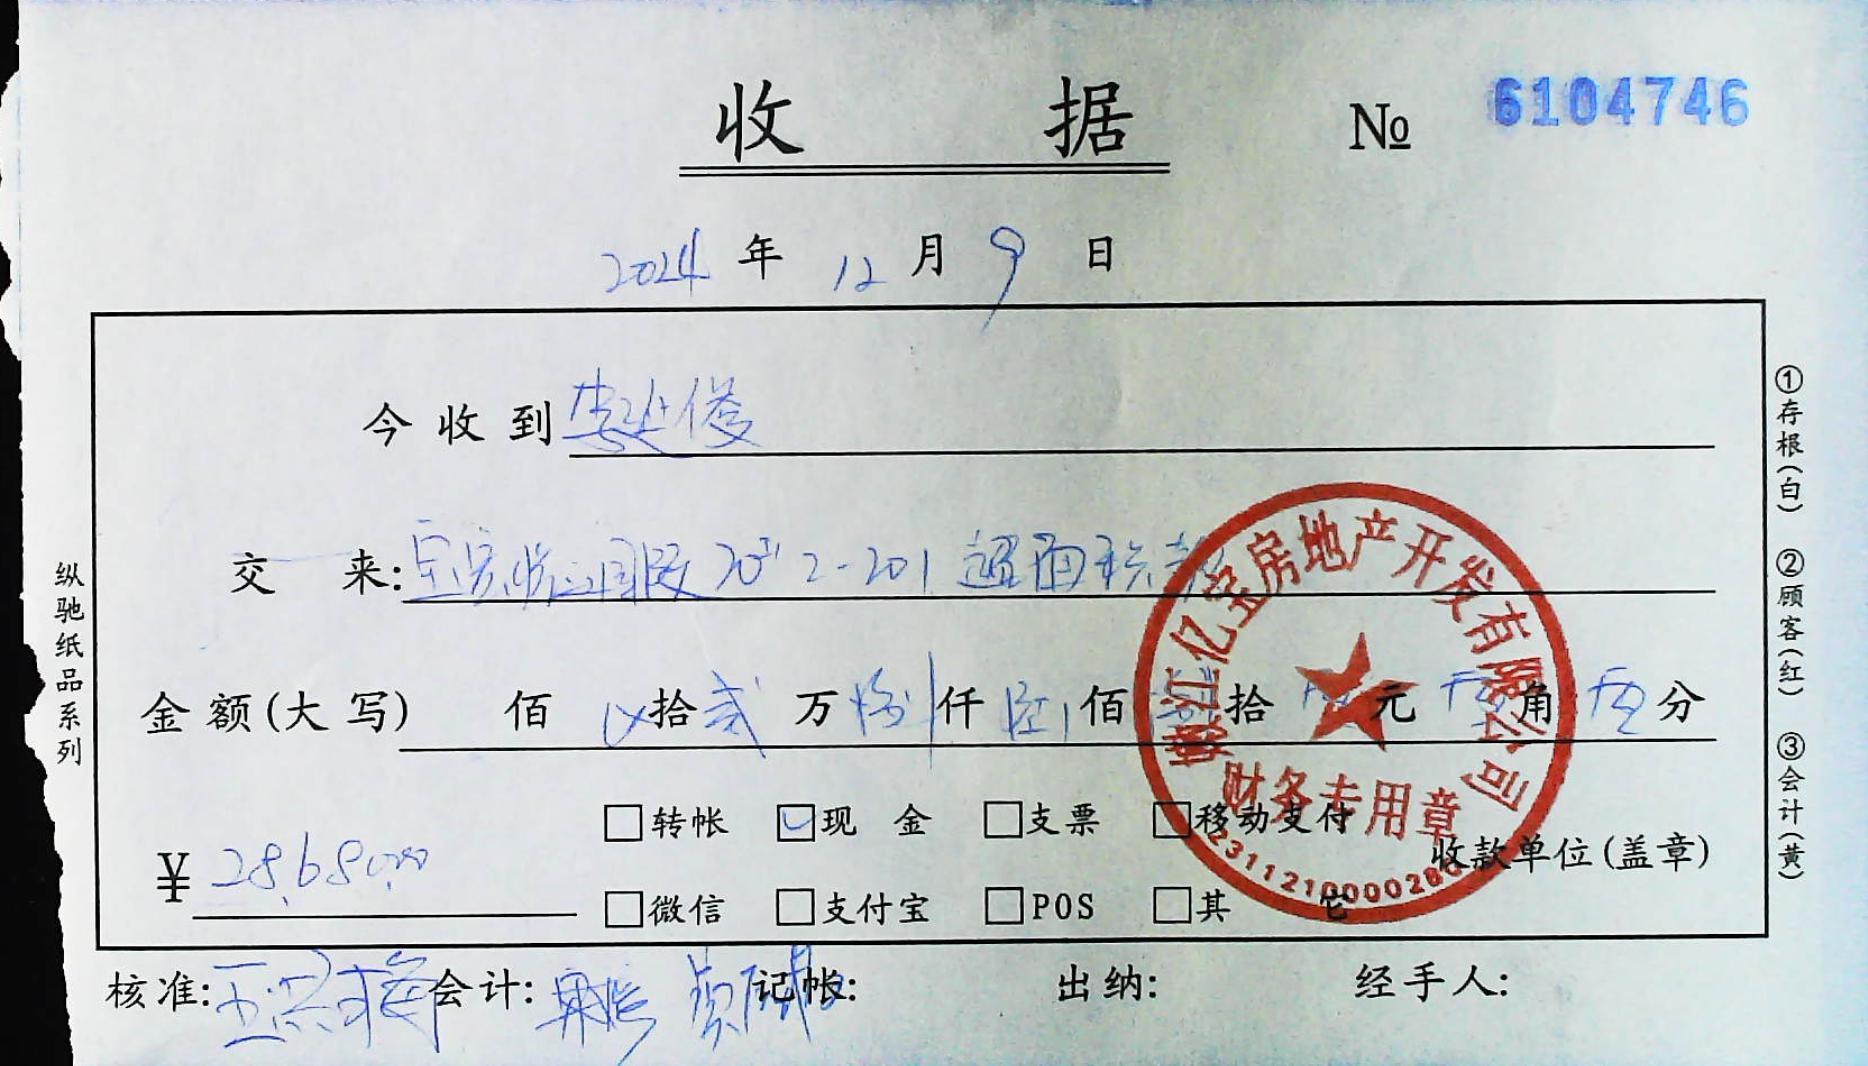 收 据 № 6104746
2024 年 12 月 9 日
今收到
交 来: 20# 2-201 超面积款
金额(大写) 佰 拾 贰 万 捌 仟 陆 佰 捌 拾 元 角 分
¥ 28,680.00
□转帐 ☑现 金 □支票 □移动支付
□微信 □支付宝 □POS □其 它
收款单位(盖章)
核准: 会计: 记帐: 出纳: 经手人:
①存根(白) ②顾客(红) ③会计(黄)
纵驰纸品系列
嫩江亿宝房地产开发有限公司
财务专用章